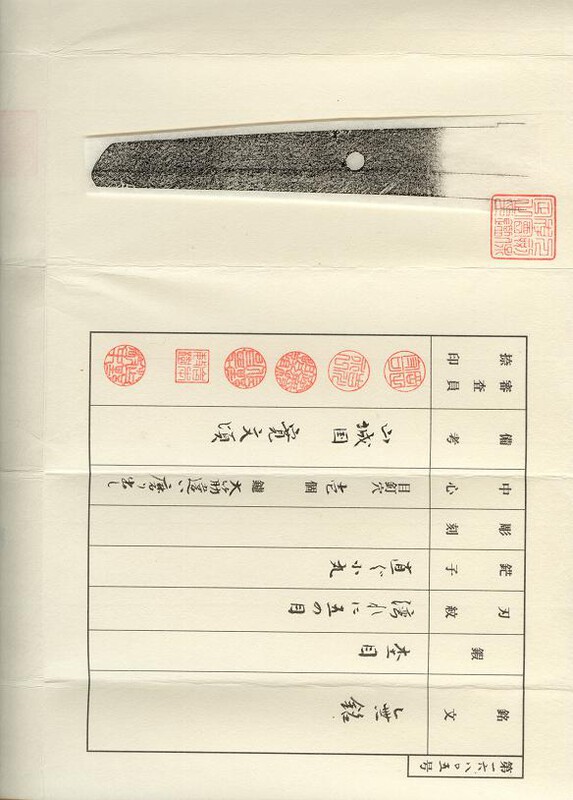 第一六八〇五号
銘文
無銘
鍛
杢目
刃紋
湾れに五の目
鋩子
直ぐ小丸
彫刻
中心
目釘穴 壱個 鑢 大筋違い磨り出し
備考
山城国 寛文頃
審査員
捺印